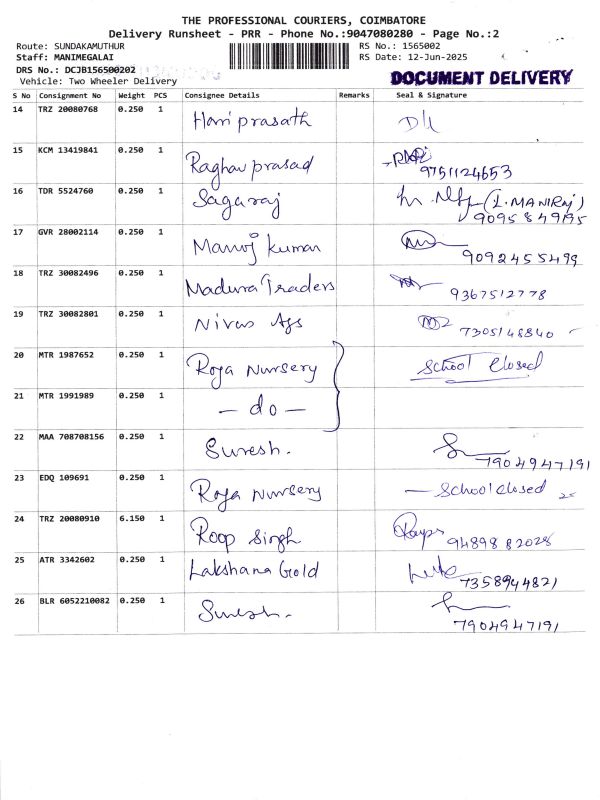 THE PROFESSIONAL COURIERS, COIMBATORE
Delivery Runsheet - PRR - Phone No.:9047080280 - Page No.:2
Route: SUNDAKAMUTHUR
RS No.: 1565002
Staff: MANIMEGALAI
RS Date: 12-Jun-2025
DRS No.: DCJB156500202
Vehicle: Two Wheeler Delivery
DOCUMENT DELIVERY
S No Consignment No Weight PCS Consignee Details Remarks Seal & Signature
14 TRZ 20080768 0.250 1 Hari prasath
15 KCM 13419841 0.250 1 Raghav prasad 9751124653
16 TDR 5524760 0.250 1 Sagaraj (I. MANIRAJ)
9095849195
17 GVR 28002114 0.250 1 Manoj kuman 9092455499
18 TRZ 30082496 0.250 1 Madura Traders 9367512778
19 TRZ 30082801 0.250 1 Nivas Ags 7305148840
20 MTR 1987652 0.250 1 Roja Nursery School Closed
21 MTR 1991989 0.250 1 — do —
22 MAA 708708156 0.250 1 Suresh. 7904947191
23 EDQ 109691 0.250 1 Roja Nursery — School closed
24 TRZ 20080910 6.150 1 Roop Singh 9489882028
25 ATR 3342602 0.250 1 Lakshana Gold 7358944821
26 BLR 6052210082 0.250 1 Suresh. 7904947191